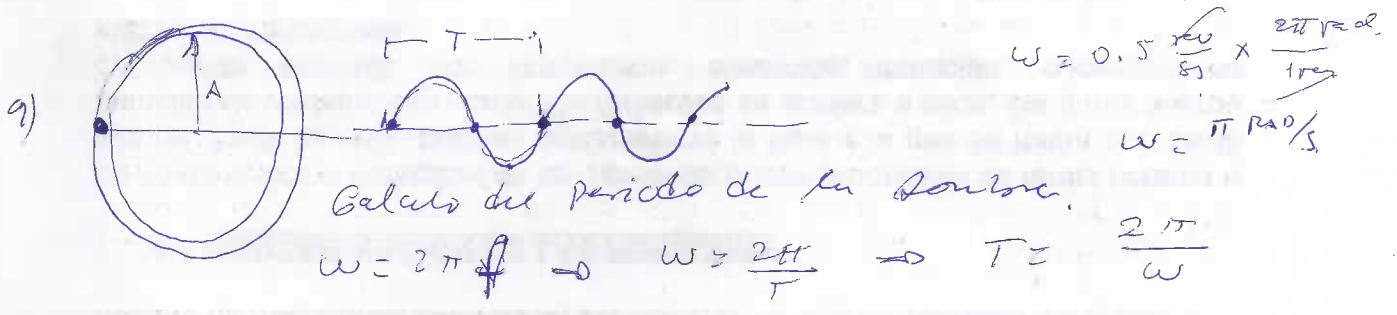 a)
A
T
ω = 0.5 rev/s × 2π rad/1 rev
ω = π RAD/s
Calculo del periodo de la sombra.
ω = 2πf ⇒ ω = 2π/T ⇒ T = 2π/ω